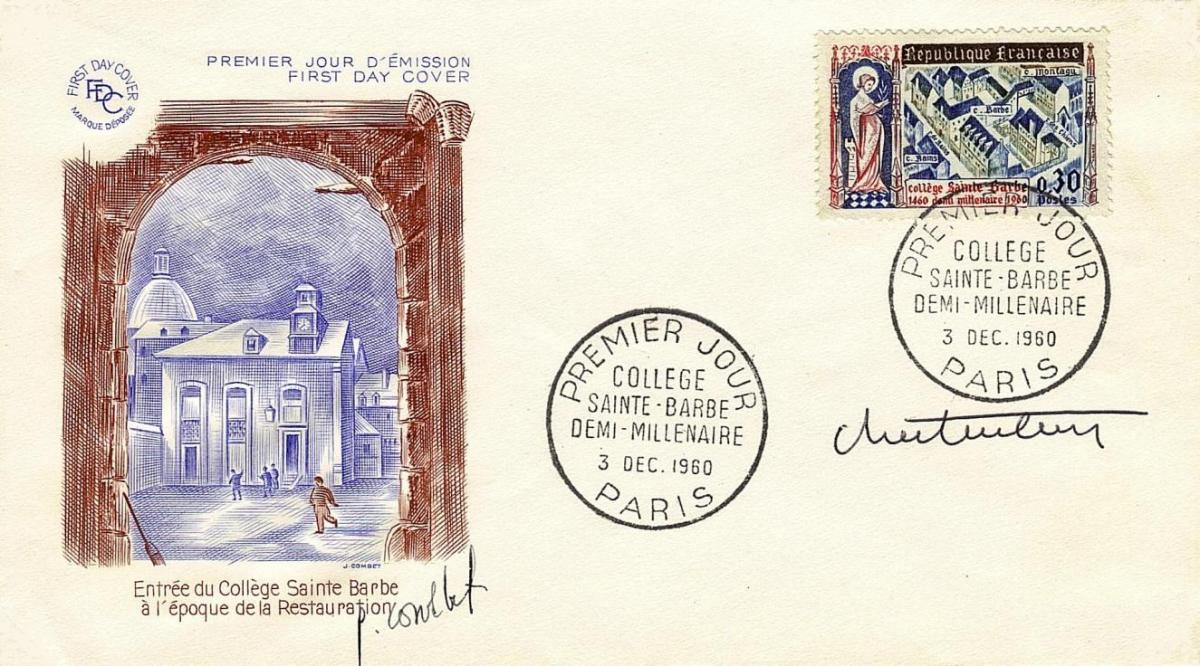 FIRST DAY COVER
FDC
MARQUE DÉPOSÉE
PREMIER JOUR D'ÉMISSION
FIRST DAY COVER
République Française
c. Montagu
c. Barbe
c. Reims
collège Sainte Barbe
1460 demi millénaire 1960
0,30
Postes
PREMIER JOUR
COLLEGE
SAINTE-BARBE
DEMI-MILLENAIRE
3 DEC. 1960
PARIS
PREMIER JOUR
COLLEGE
SAINTE-BARBE
DEMI-MILLENAIRE
3 DEC. 1960
PARIS
J. COMBET
Entrée du Collège Sainte Barbe
à l'époque de la Restauration
J. Combet